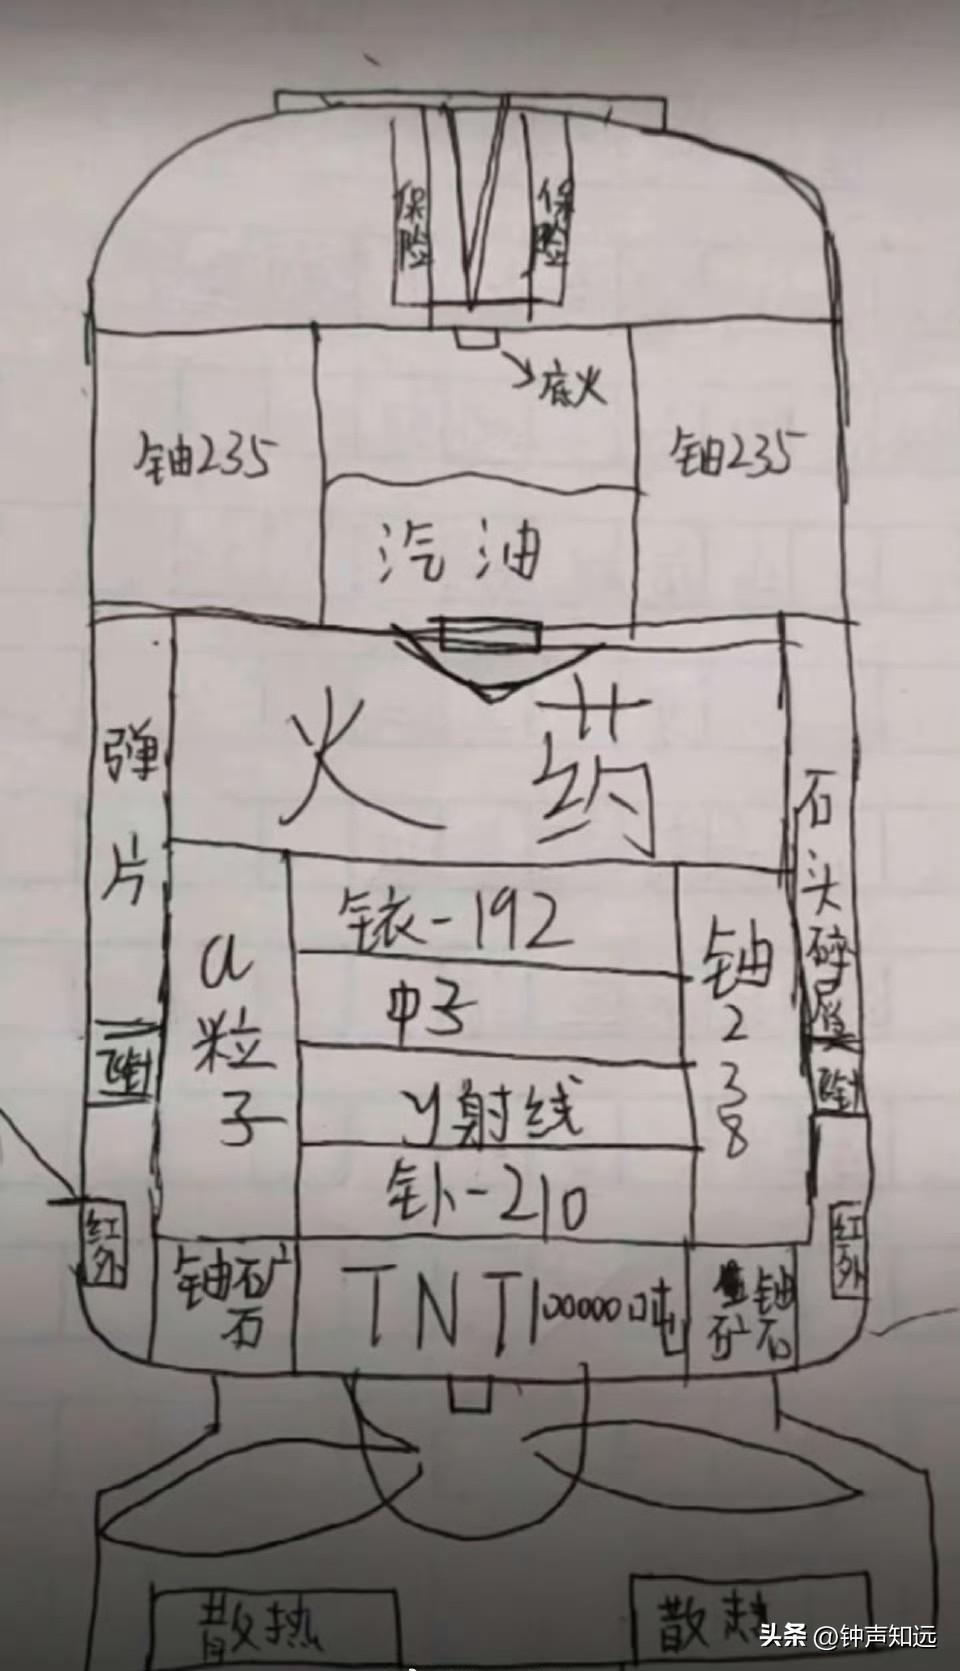 保险
保险
底火
铀235
铀235
汽油
火药
弹片
石头碎屑
a粒子
铱-192
中子
y射线
钋-210
铀238
红外
红外
铀矿石
TNT100000吨
铀矿石
散热
散热
头条 @钟声知远